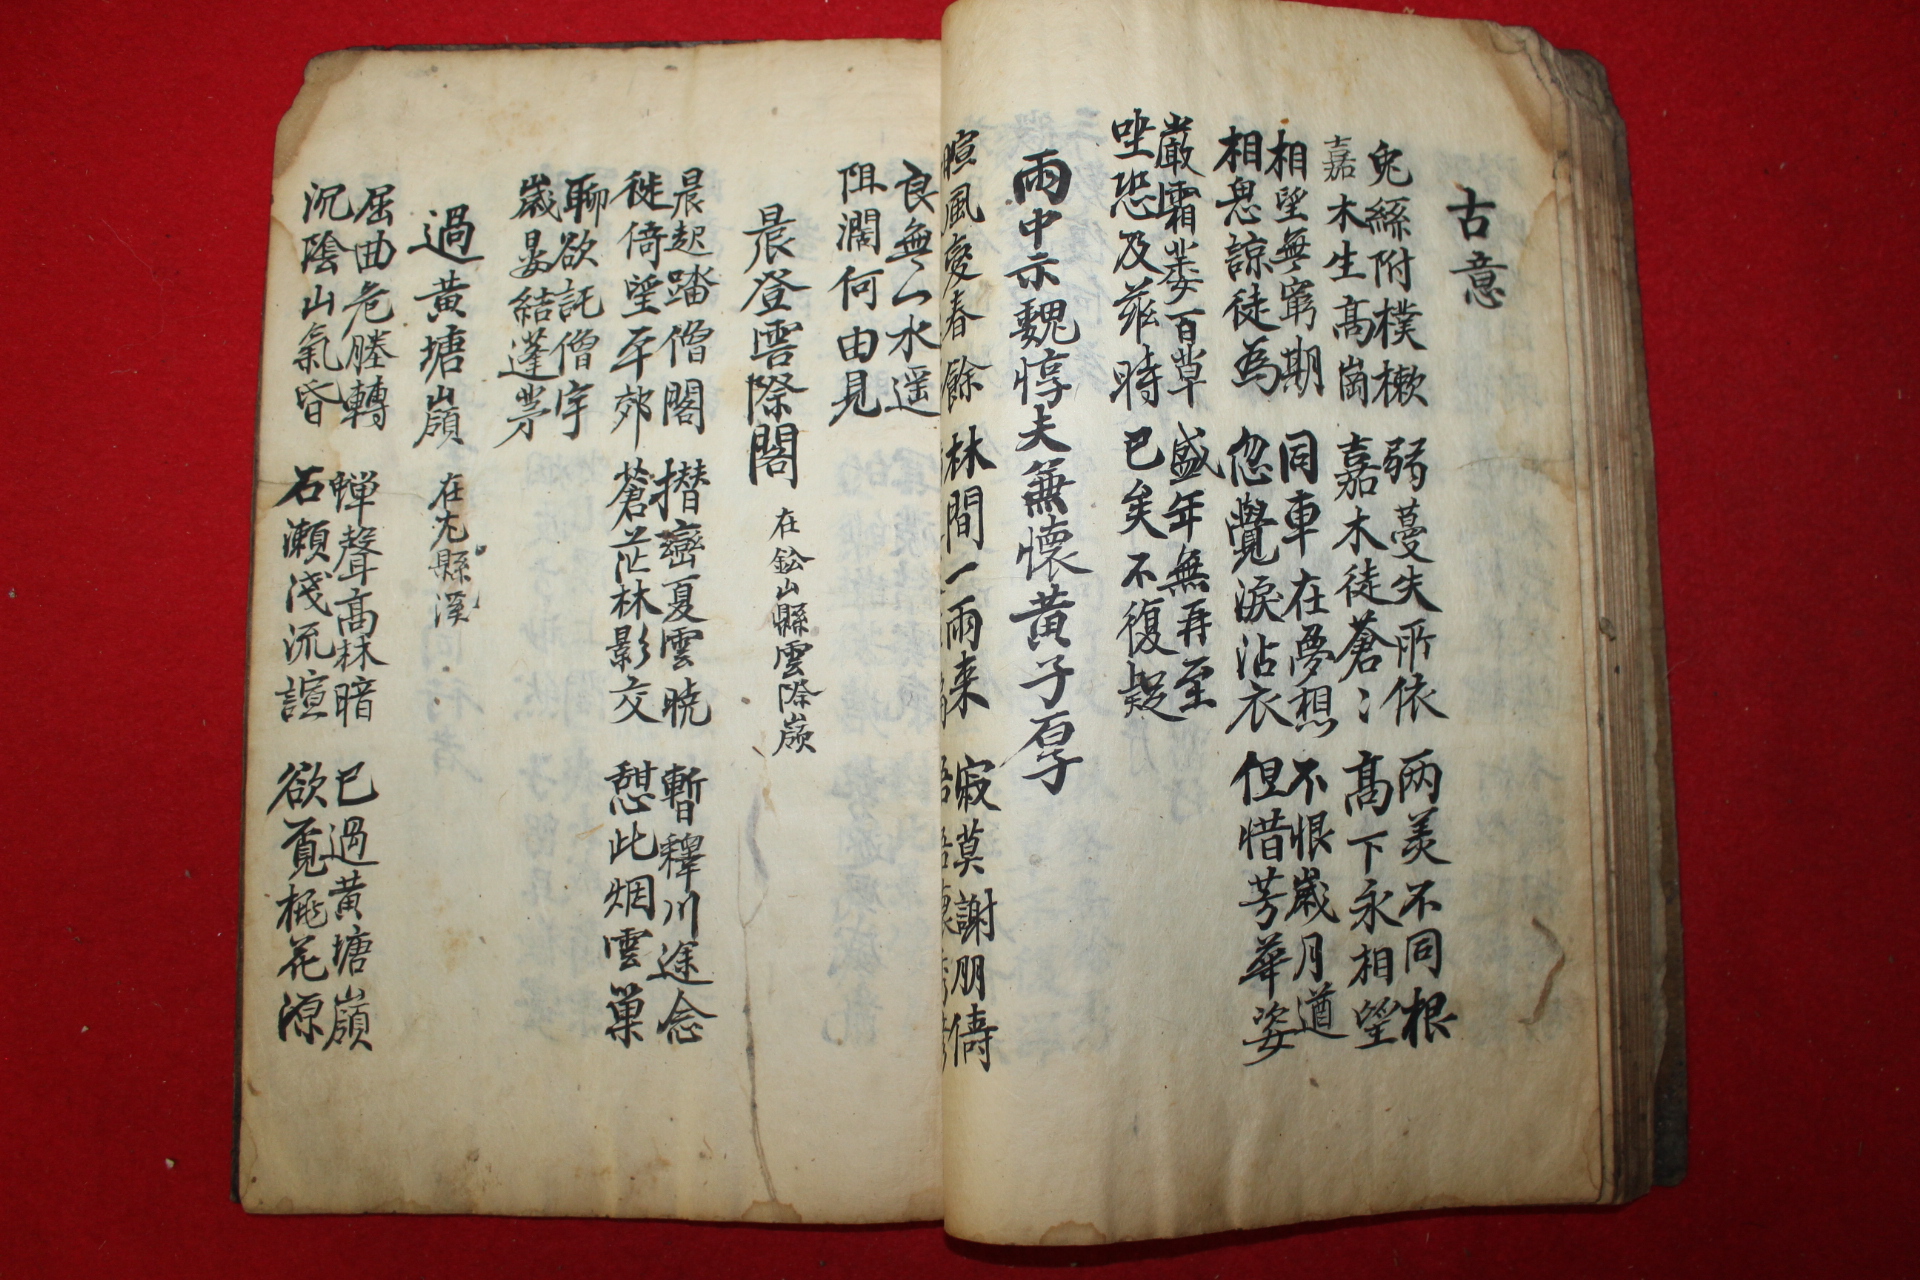 古意
兎絲附樸樕 弱蔓失所依 两美不同根
嘉木生高崗 嘉木徒蒼〻 高下永相望
相望無窮期 同車在夢想 不恨歲月遒
相思諒徒為 忽覺淚沾衣 但惜芳華姿
嚴霜萎百草 盛年無再至
坐恐及茲時 已矣不復疑
雨中示魏惇夫兼懷黄子厚
暄風變春餘 林間一雨来 寂莫謝朋儔
良無一水遥
阻濶何由見
晨登雲際閣 在鈆山縣雲際嶺
晨起踏僧閣 攢巒夏雲曉 暫釋川途念
徙倚望平郊 蒼茫林影交 憇此烟雲巢
聊欲託僧宇
歲晏結蓬茅
過黄塘嶺 在尤縣溪
屈曲危塍轉 蟬聲高林暗 已過黄塘嶺
沉陰山氣昏 石瀬淺流諠 欲覓桃花源